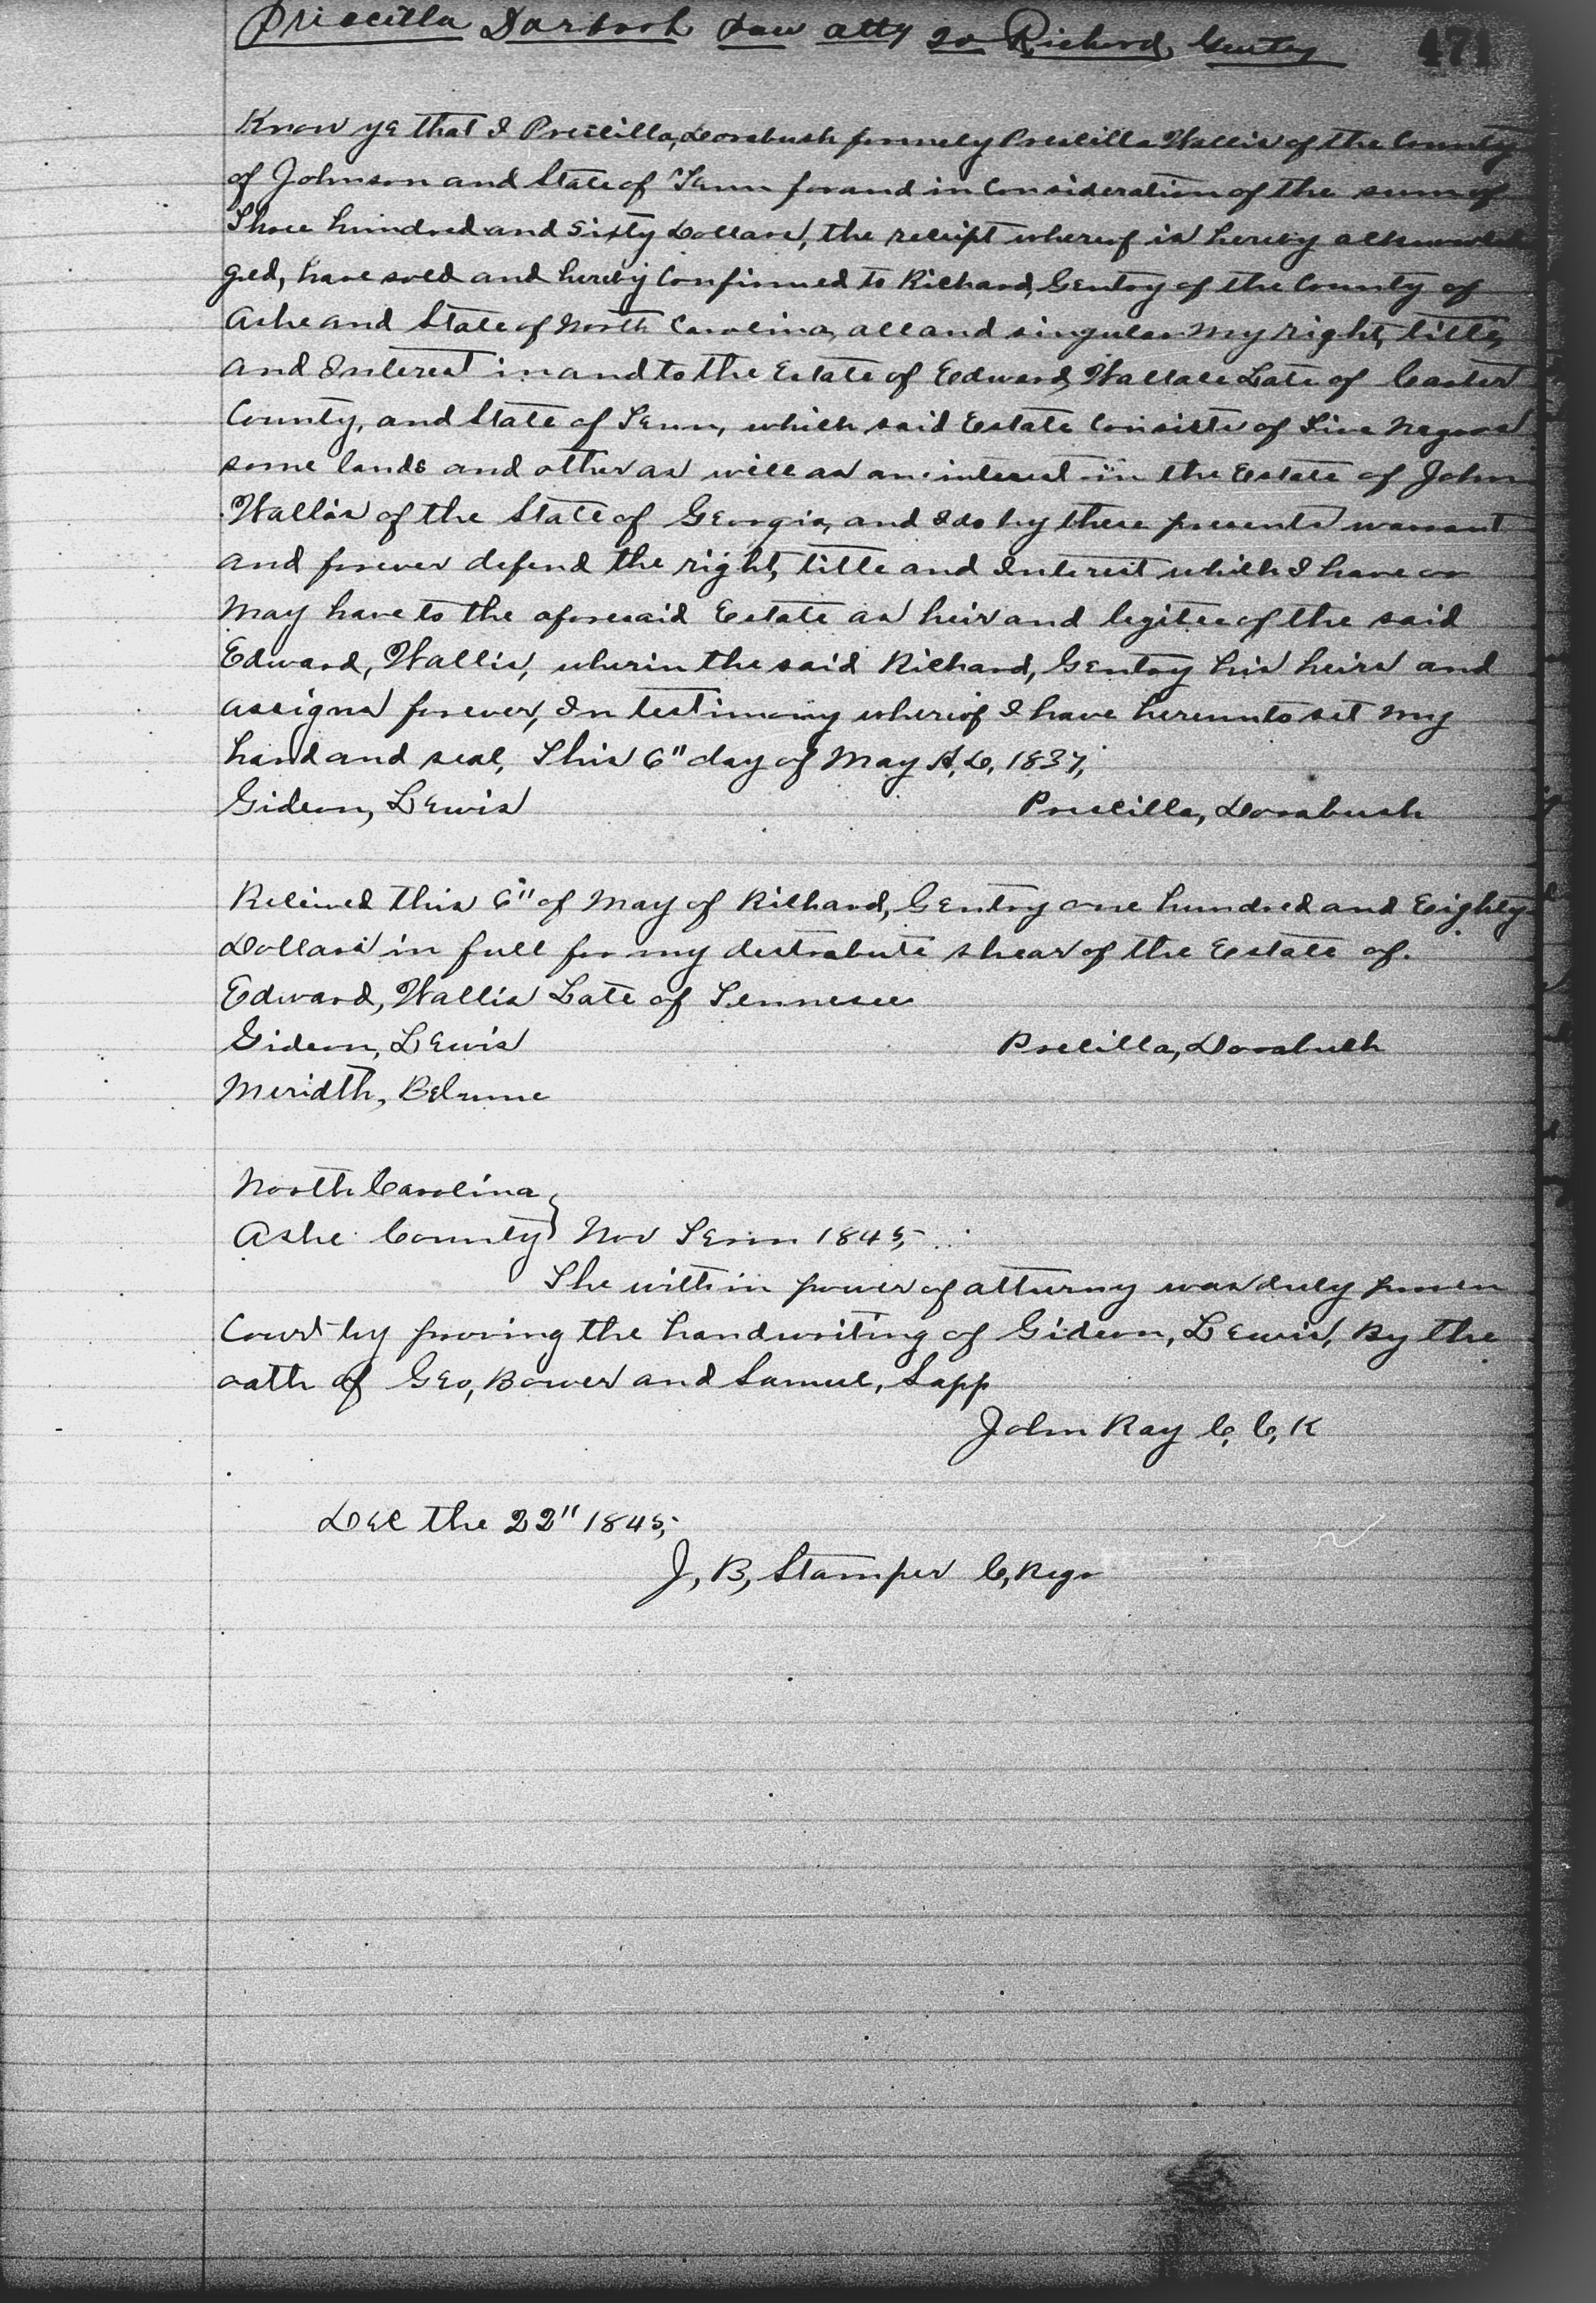 Priscilla Darbosh Pow atty to Richard, Gentry 471
Know ye that I Precilla, Dorabush formely Precilla Wallis of the County
of Johnson and State of Tenn for and in Consideration of the sum of
Three hundred and Sixty Dollars, the receipt whereof is hereby acknowled
ged, have sold and hereby Confirmed to Richard, Gentry of the County of
Ashe and State of North Carolina, all and singular my right, title,
and Interest in and to the Estate of Edward, Wallace Late of Carter
County, and State of Tenn, which said Estate Consists of Five Negroes
some lands and other as well as an interest in the Estate of John
Wallis of the State of Georgia, and I do by these presents warrant
and forever defend the right, title and Interest which I have or
may have to the aforesaid Estate as heir and legitee of the said
Edward, Wallis, wherin the said Richard, Gentry his heirs and
assigns forever, In testimony whereof I have hereunto set my
hand and seal, This 6" day of May A, D, 1837,
Gideon, Lewis Precilla, Dorabush
Recieved this 6" of May of Richard, Gentry one hundred and Eighty
Dollars in full for my destrabute shear of the Estate of.
Edward, Wallis Late of Tennesee
Gideon, Lewis Precilla, Dorabush
Meridth, 
North Carolina
Ashe County Nov Term 1845,
The within power of atturny was duly proven
Court by proving the handwriting of Gideon, Lewis, By the
oath of Geo, Bower and Samuel, Sapp
John Ray C, C, K
Dec the 22" 1845,
J, B, Stamper C, Regr